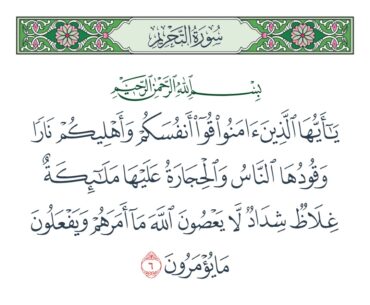 سُورَةُ التَّحْرِيمِ
بِسْمِ اللَّهِ الرَّحْمَٰنِ الرَّحِيمِ
يَـٰٓأَيُّهَا ٱلَّذِينَ ءَامَنُوا۟ قُوٓا۟ أَنفُسَكُمْ وَأَهْلِيكُمْ نَارًا
وَقُودُهَا ٱلنَّاسُ وَٱلْحِجَارَةُ عَلَيْهَا مَلَـٰٓئِكَةٌ
غِلَاظٌ شِدَادٌ لَّا يَعْصُونَ ٱللَّهَ مَآ أَمَرَهُمْ وَيَفْعَلُونَ
مَا يُؤْمَرُونَ ٦